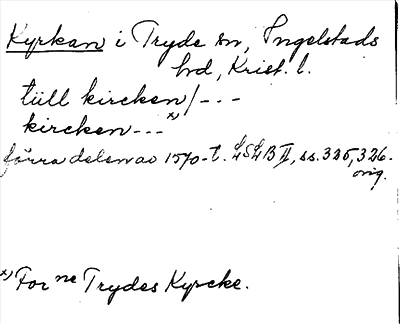 Kyrkan i Tryde sn, Ingelstads
hd, Krist. l.
tiill kircken/---
kircken---x)
förra delen av 1570-t. LSLB II, ss. 325, 326.
orig.
x) For ne Trydes Kyrcke.